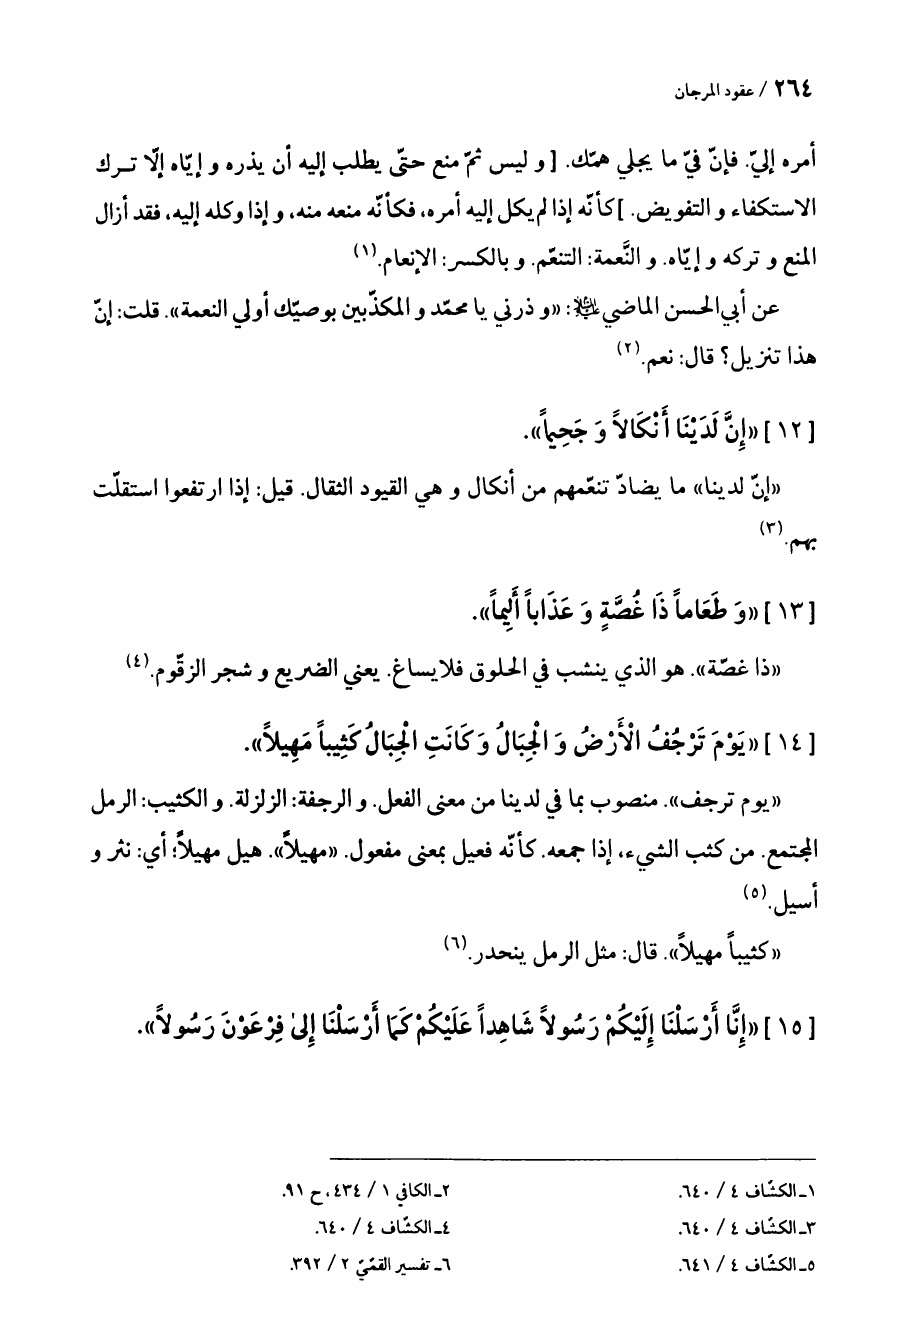 ٢٦٤ / عقود المرجان
أمره إليّ. فإنّ فيّ ما يجلي همّك. [و ليس ثمّ منع حتّى يطلب إليه أن يذره و إيّاه إلّا تـرك
الاستكفاء و التفويض.] كأنّه إذا لم يكل إليه أمره، فكأنّه منعه منه، و إذا وكله إليه، فقد أزال
المنع و تركه و إيّاه. و النَّعمة: التنعّم. و بالكسر: الإنعام.(١)
عن أبي‌الحسن الماضي عليه السلام: «و ذرني يا محمّد و المكذّبين بوصيّك أولي النعمة». قلت: إنّ
هذا تنزيل؟ قال: نعم.(٢)
[١٢] «إِنَّ لَدَيْنَا أَنْكَالاً وَ جَحِيماً».
«إنّ لدينا» ما يضادّ تنعّمهم من أنكال و هي القيود الثقال. قيل: إذا ارتفعوا استقلّت
بهم.(٣)
[١٣] «وَ طَعَاماً ذَا غُصَّةٍ وَ عَذَاباً أَلِيماً».
«ذا غصّة». هو الذي ينشب في الحلوق فلايساغ. يعني الضريع و شجر الزقّوم.(٤)
[١٤] «يَوْمَ تَرْجُفُ الْأَرْضُ وَ الْجِبَالُ وَ كَانَتِ الْجِبَالُ كَثِيباً مَهِيلاً».
«يوم ترجف». منصوب بما في لدينا من معنى الفعل. و الرجفة: الزلزلة. و الكثيب: الرمل
المجتمع. من كثب الشيء، إذا جمعه. كأنّه فعيل بمعنى مفعول. «مهيلاً». هيل مهيلاً؛ أي: نثر و
أسيل.(٥)
«كثيباً مهيلاً». قال: مثل الرمل ينحدر.(٦)
[١٥] «إِنَّا أَرْسَلْنَا إِلَيْكُمْ رَسُولاً شَاهِداً عَلَيْكُمْ كَمَا أَرْسَلْنَا إِلىٰ فِرْعَوْنَ رَسُولاً».
١ـ الكشّاف ٤ / ٦٤٠.
٢ـ الكافي ١ / ٤٣٤، ح ٩١.
٣ـ الكشّاف ٤ / ٦٤٠.
٤ـ الكشّاف ٤ / ٦٤٠.
٥ـ الكشّاف ٤ / ٦٤١.
٦ـ تفسير القمّيّ ٢ / ٣٩٢.